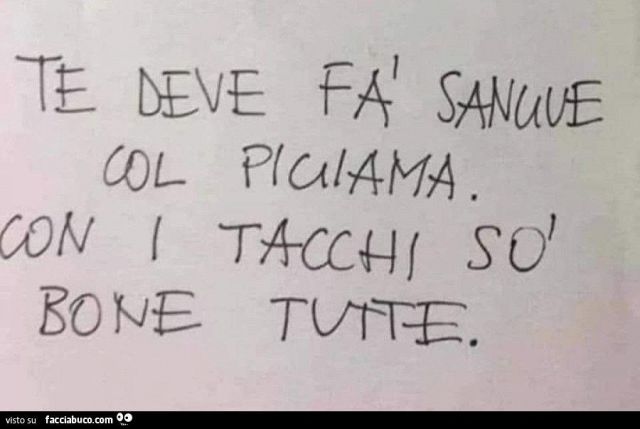 TE DEVE FA' SANGUE
COL PIGIAMA.
CON I TACCHI SO'
BONE TUTTE.
visto su facciabuco.com